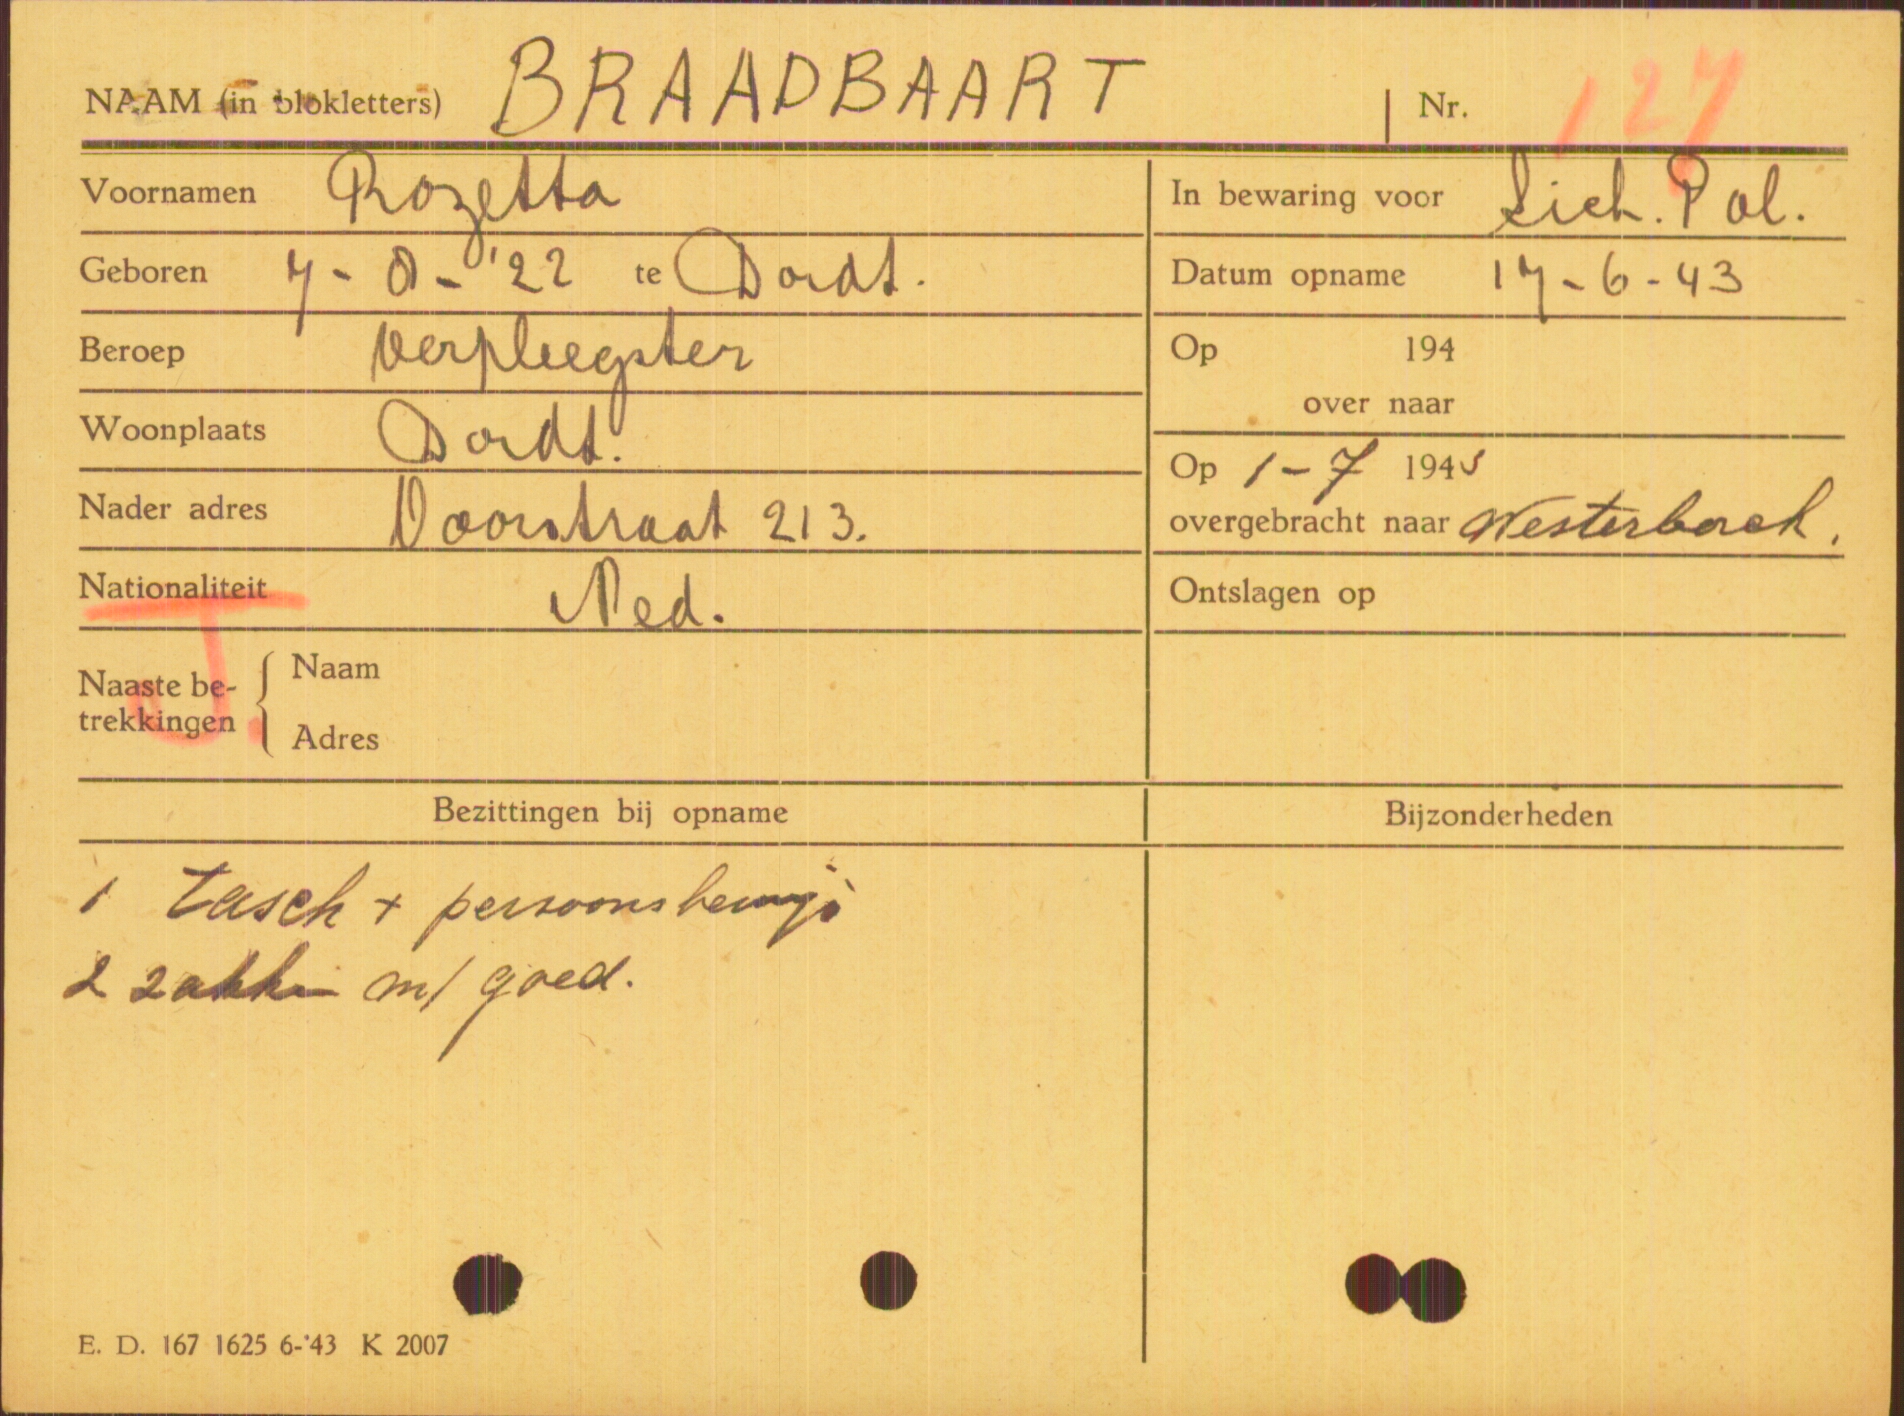 NAAM (in blokletters) BRAADBAART Nr. 127
Voornamen Rozetta
In bewaring voor Sich. Pol.
Geboren 7-8-'22 te Dordt.
Datum opname 17-6-43
Beroep verpleegster
Op 194
over naar
Woonplaats Dordt.
Op 1-7 1943
Nader adres Voorstraat 213.
overgebracht naar Westerborch.
Nationaliteit Ned.
Ontslagen op
J.
Naaste be-
trekkingen
Naam
Adres
Bezittingen bij opname
Bijzonderheden
1 tasch + persoonsbewijs
2 zakken m/ goed.
E. D. 167 1625 6-'43 K 2007